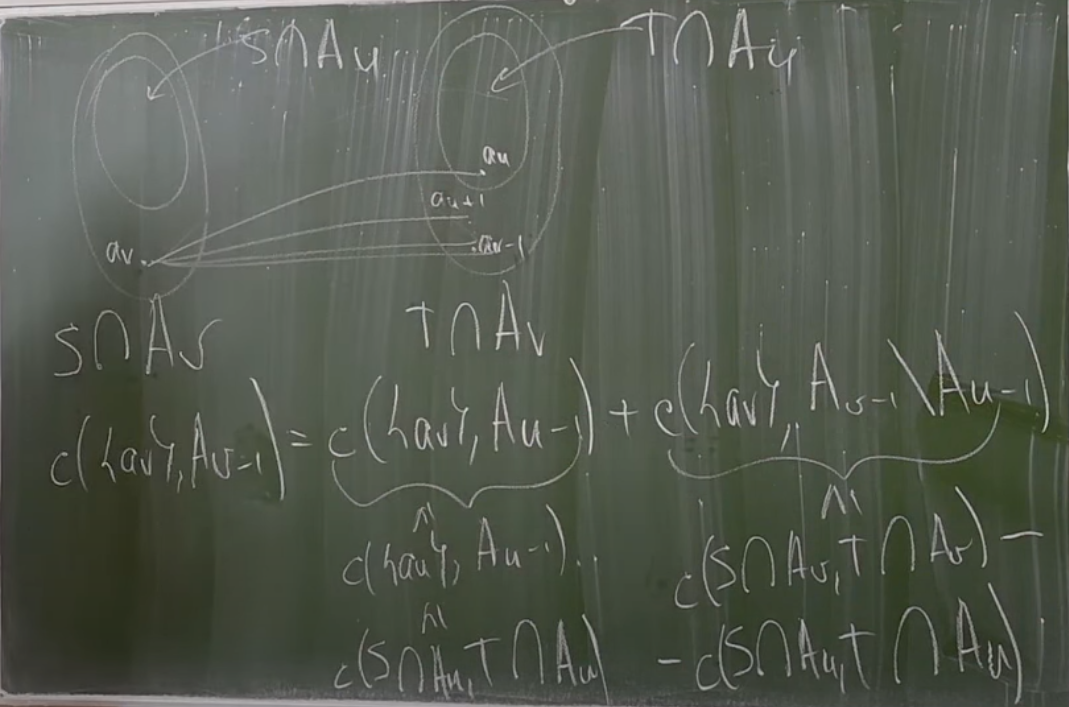 S∩Au T∩Au
au
au+1
av av-1
S∩Av T∩Av
c({av}, Av-1) = c({av}, Au-1) + c({av}, Av-1 \ Au-1)
c({au}, Au-1) c(S∩Av, T∩Av) -
c(S∩Au, T∩Au) - c(S∩Au, T∩Au)